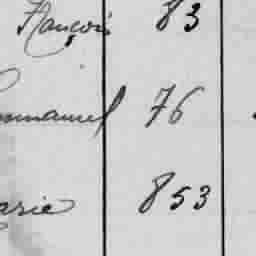 François 83
mmanuel 76
arie 853